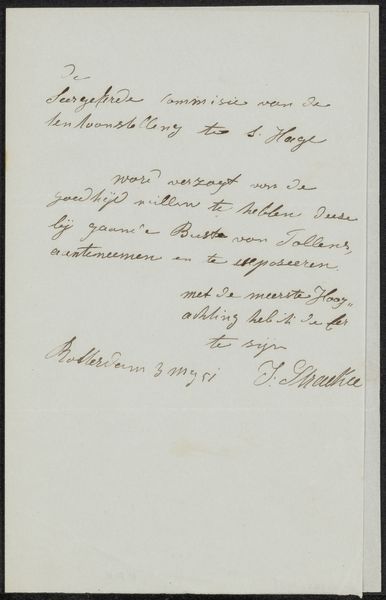 de
Seergeëerde Commisie van de
tentoonstelling te s. Hage
word verzogt van de
goedhijd willen te hebben deese
bij gaande Buste van Tollens,
aanteneemen en te exposeeren
met de meeste Hoog„
achting heb ik de Eer
te zijn
Rotterdam 3 My 51 J. Stracké